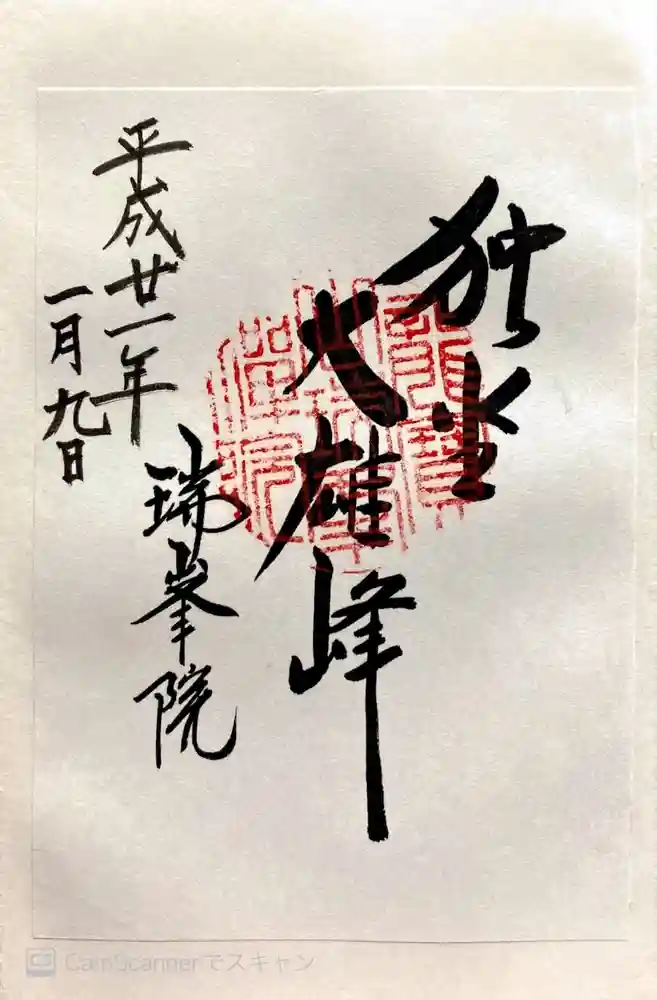 独坐
大雄峰
平成廿一年
一月九日
瑞峯院
CamScannerでスキャン